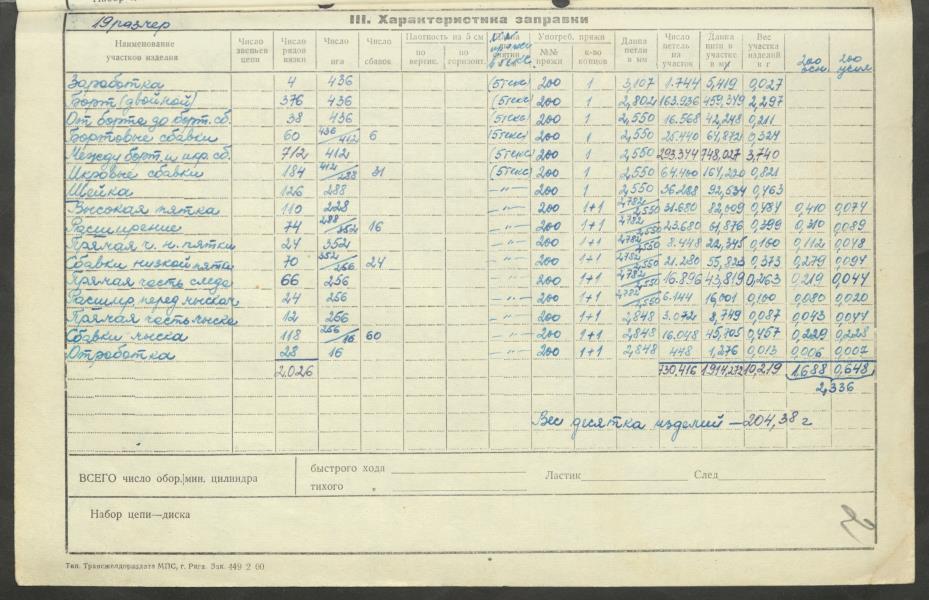 19 размер
III. Характеристика заправки
Наименование участков изделия Число звеньев цепи Число рядов вязки Число игл Число сбавок Плотность на 5 см по вертик. по горизонт. Употреб. пряжи №№ пряжи к-во концов Длина петли в мм Число петель на участок Длина нити в участке в м Вес участка изделий в г 200 осн. 200 усил.
Заработка 4 436 (5текс) 200 1 3,107 1.744 5,419 0,027
Борт (двойной) 376 436 (5текс) 200 1 2,802 163.936 459,349 2,297
От борта до борт. сб. 38 436 (5текс) 200 1 2,550 16.568 42,248 0,211
Бортовые сбавки 60 436/412 6 (5текс) 200 1 2,550 25.440 64,872 0,324
Между борт. и икр. сб. 712 412 (5текс) 200 1 2,550 293.344 748,027 3,740
Икровые сбавки 184 412/288 31 (5текс) 200 1 2,550 64.400 164,220 0,821
Шейка 126 288 —"— 200 1 2,550 36.288 92,534 0,463
Высокая пятка 110 288 —"— 200 1+1 2,782/2,550 31.680 82,009 0,484 0,410 0,074
Расширение 74 288/352 16 —"— 200 1+1 2,782/2,550 23.680 61,876 0,399 0,310 0,089
Прямая ч. н. пятки 24 352 —"— 200 1+1 2,782/2,550 8.448 22,345 0,160 0,112 0,048
Сбавки низкой пятки 70 352/256 24 —"— 200 1+1 2,782/2,550 21.280 55,823 0,373 0,279 0,094
Прямая часть следа 66 256 —"— 200 1+1 2,782/2,550 16.896 43,819 0,263 0,219 0,044
Расшир. перед мыском 24 256 —"— 200 1+1 2,782/2,550 6.144 16,001 0,100 0,080 0,020
Прямая часть мыска 12 256 —"— 200 1+1 2,848 3.072 8,749 0,087 0,043 0,044
Сбавки мыска 118 256/16 60 —"— 200 1+1 2,848 16.048 45,705 0,457 0,229 0,228
Отработка 28 16 —"— 200 1+1 2,848 448 1,276 0,013 0,006 0,007
2.026 730.416 1914,272 10,219 1.688 0,648
2,336
Вес десятка изделий — 204,38 г
ВСЕГО число обор./мин. цилиндра быстрого хода Ластик След
тихого "
Набор цепи—диска
Тип. Трансжелдориздата МПС, г. Рига. Зак. 449 2 60